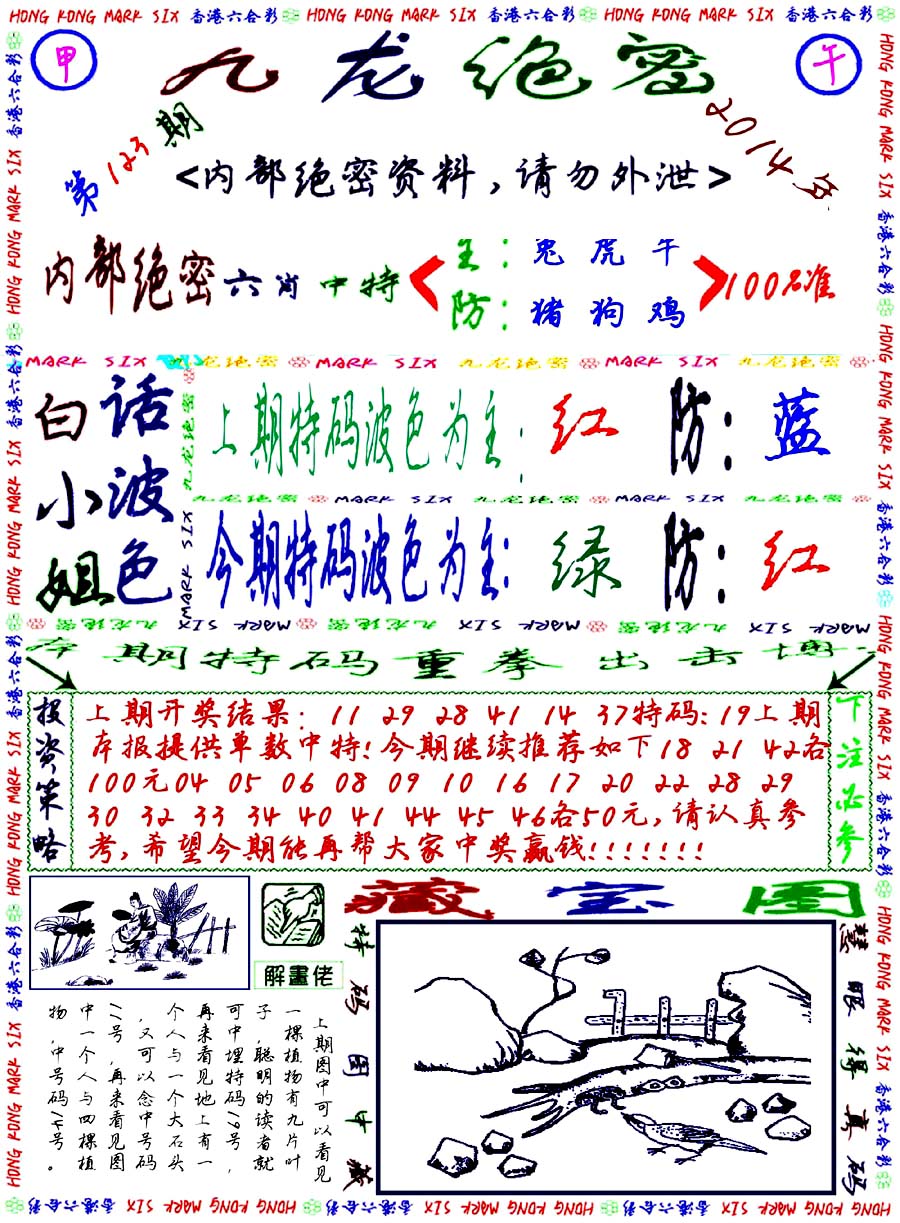 HONG KONG MARK SIX 香港六合彩 HONG KONG MARK SIX 香港六合彩 HONG KONG MARK SIX 香港六合彩
甲 九龙绝密 午
第123期
2014年
<内部绝密资料,请勿外泄>
内部绝密六肖中特
主:兔 虎 牛
防:猪 狗 鸡
100%准
MARK SIX 九龙绝密 MARK SIX 九龙绝密 MARK SIX 九龙绝密
白话
小波
姐色
上期特码波色为主: 红 防: 蓝
九龙绝密 MARK SIX 九龙绝密 MARK SIX 九龙绝密
今期特码波色为主: 绿 防: 红
九龙绝密 MARK SIX 九龙绝密 MARK SIX 九龙绝密 MARK SIX
本期特码重拳出击博
投资策略
上期开奖结果: 11 29 28 41 14 37特码:19上期
本报提供单数中特!今期继续推荐如下18 21 42各
100元04 05 06 08 09 10 16 17 20 22 28 29
30 32 33 34 40 41 44 45 46各50元,请认真参
考,希望今期能再帮大家中奖赢钱!!!!!!!
下注必参
藏宝图
解畫佬
上期图中可以看见
一棵植物有九片叶
子,聪明的读者就
可中埋特码19号,
再来看见地上有一
个人与一个大石头
,又可以念中号码
11号,再来看见图
中一个人与四棵植
物,中号码14号。
特码图中藏
慧眼得真码
HONG KONG MARK SIX 香港六合彩 HONG KONG MARK SIX 香港六合彩 HONG KONG MARK SIX 香港六合彩